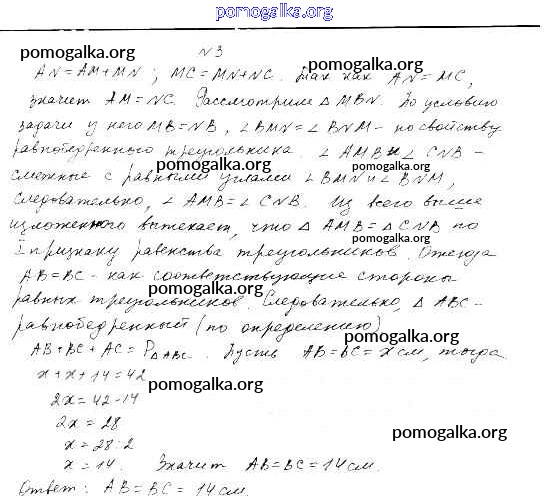 pomogalka.org
N3
pomogalka.org pomogalka.org
AN=AM+MN; MC=MN+NC. Так как AN=MC,
значит AM=NC. Рассмотрим Δ MBN. По условию
pomogalka.org
задачи у него MB=NB, ∠BMN=∠BNM - по свойству
равнобедренного треугольника. ∠AMB и ∠CNB -
pomogalka.org pomogalka.org
смежные с равными углами ∠BMN и ∠BNM,
следовательно, ∠AMB=∠CNB. Из всего выше
pomogalka.org
изложенного вытекает, что Δ AMB=Δ CNB по
I признаку равенства треугольников. Отсюда
pomogalka.org
AB=BC - как соответствующие стороны
равных треугольников. Следовательно, Δ ABC -
pomogalka.org
равнобедренный (по определению)
pomogalka.org
AB+BC+AC=PΔABC. Пусть AB=BC=x см, тогда
x+x+14=42
pomogalka.org
2x=42-14
2x=28
x=28:2
pomogalka.org
x=14. Значит AB=BC=14 см.
pomogalka.org
Ответ: AB=BC=14 см.